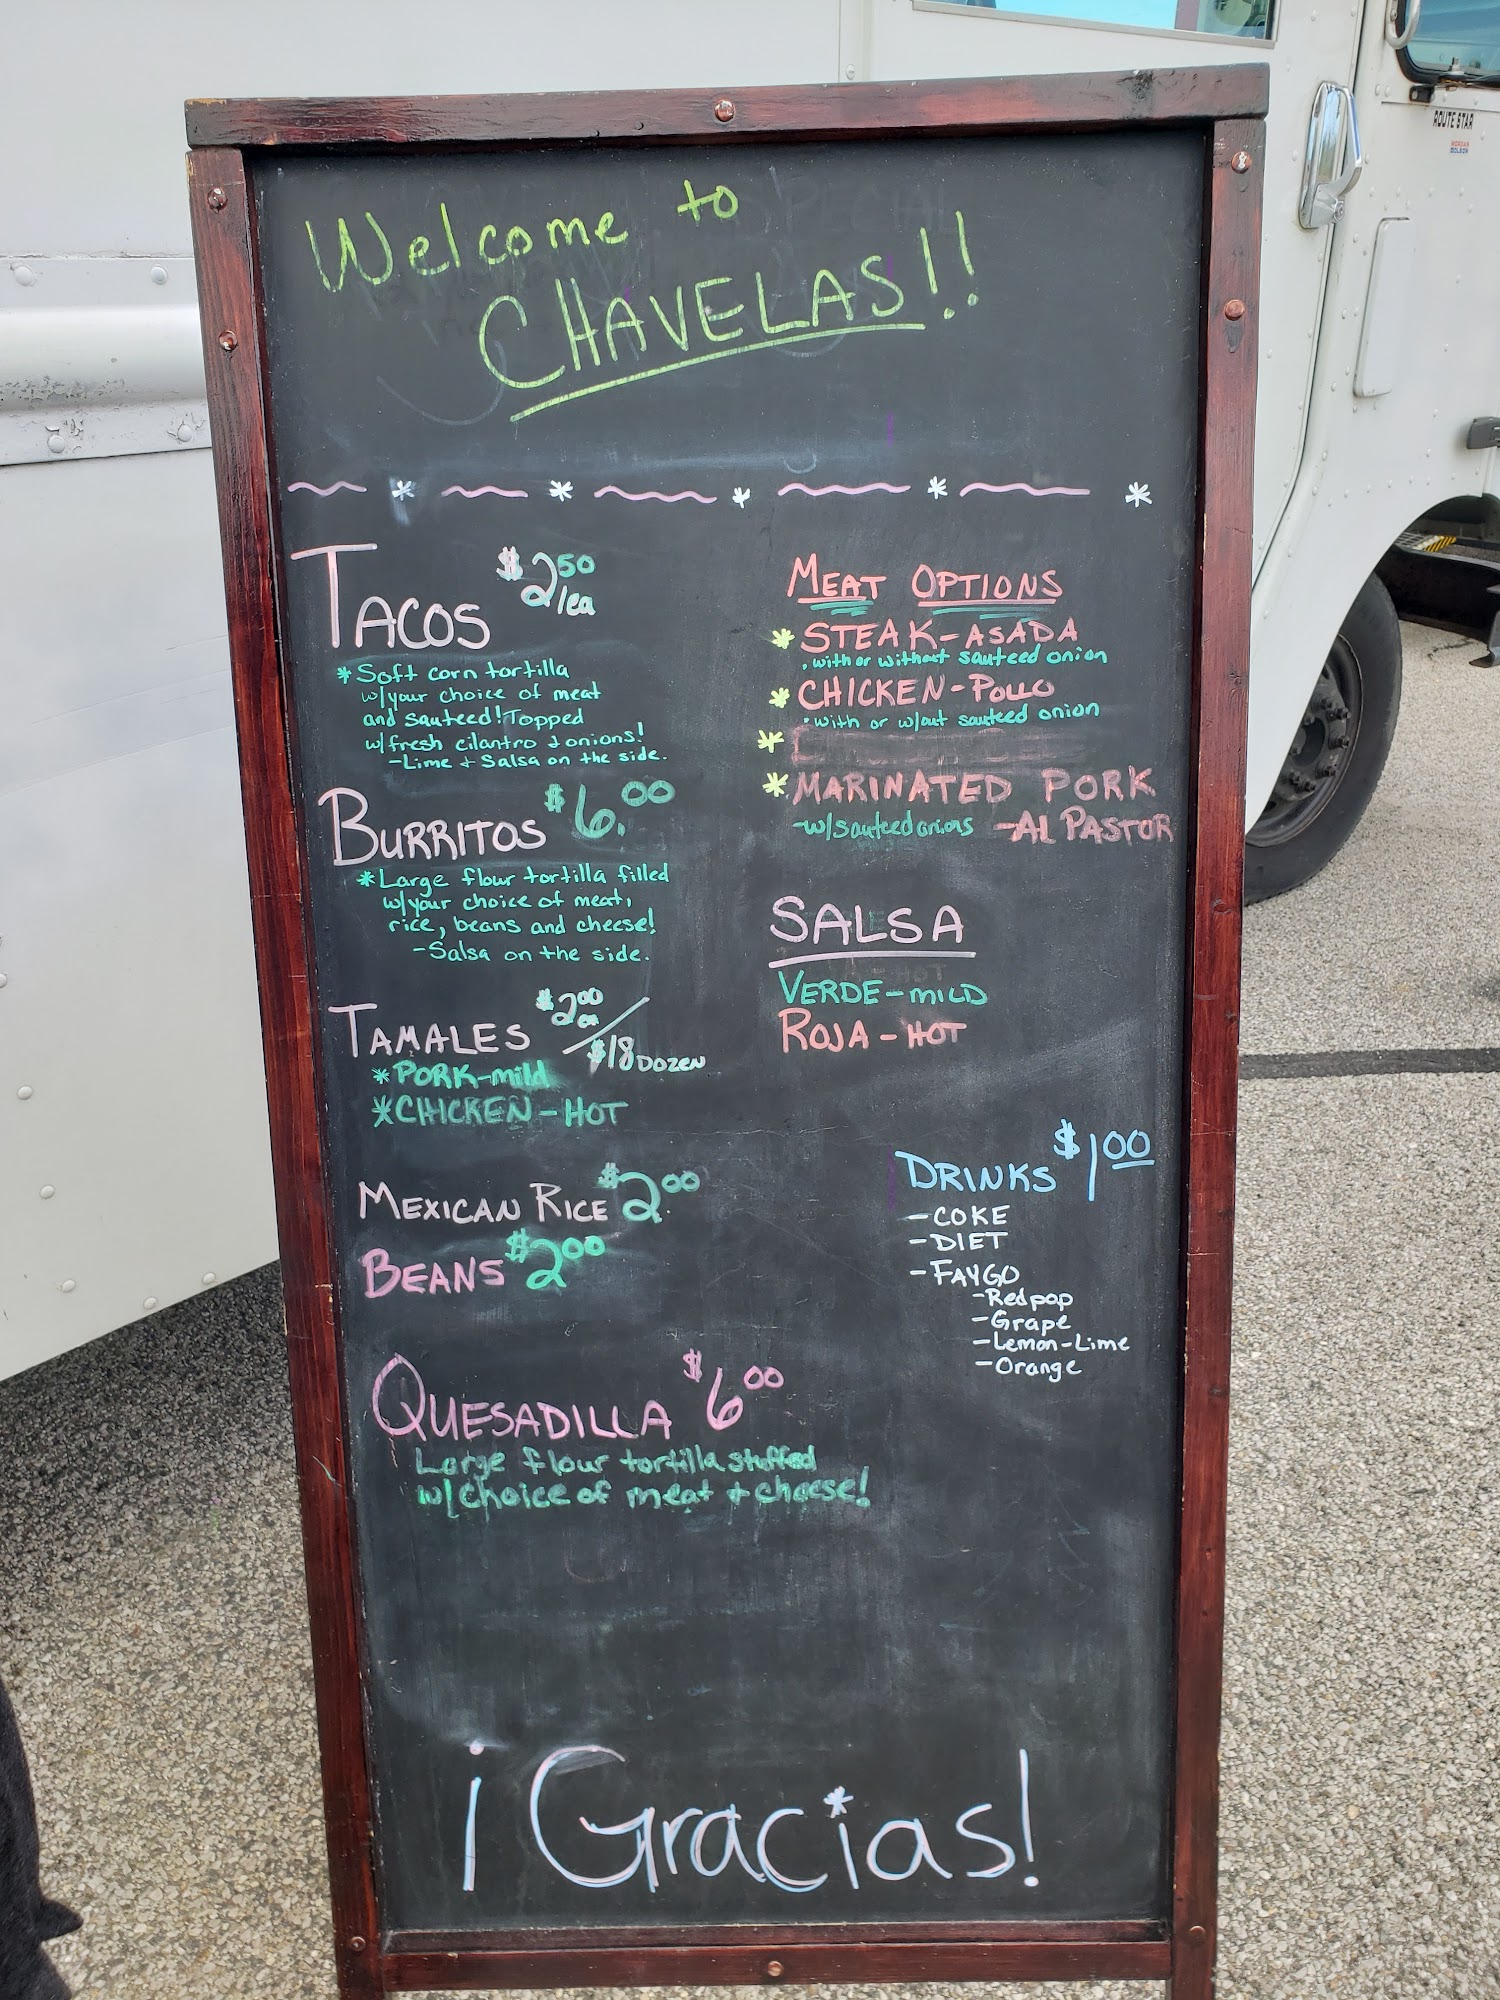 Welcome to
CHAVELAS!!
TACOS $2.50/ea
*Soft corn tortilla
w/your choice of meat
and sauteed! Topped
w/fresh cilantro + onions!
-Lime + Salsa on the side.
BURRITOS $6.00
*Large flour tortilla filled
w/your choice of meat,
rice, beans and cheese!
-Salsa on the side.
TAMALES $2.00 ea / $18 DOZEN
*PORK-mild
*CHICKEN-HOT
MEXICAN RICE $2.00
BEANS $2.00
QUESADILLA $6.00
Large flour tortilla stuffed
w/choice of meat + cheese!
MEAT OPTIONS
*STEAK-ASADA
.with or without sauteed onion
*CHICKEN-POLLO
.with or w/out sauteed onion
*
*MARINATED PORK
-w/sauteed onions -AL PASTOR
SALSA
VERDE-MILD
ROJA-HOT
DRINKS $1.00
-COKE
-DIET
-FAYGO
-Redpop
-Grape
-Lemon-Lime
-Orange
¡Gracias!
ROUTE STAR
MORGAN
OLSON